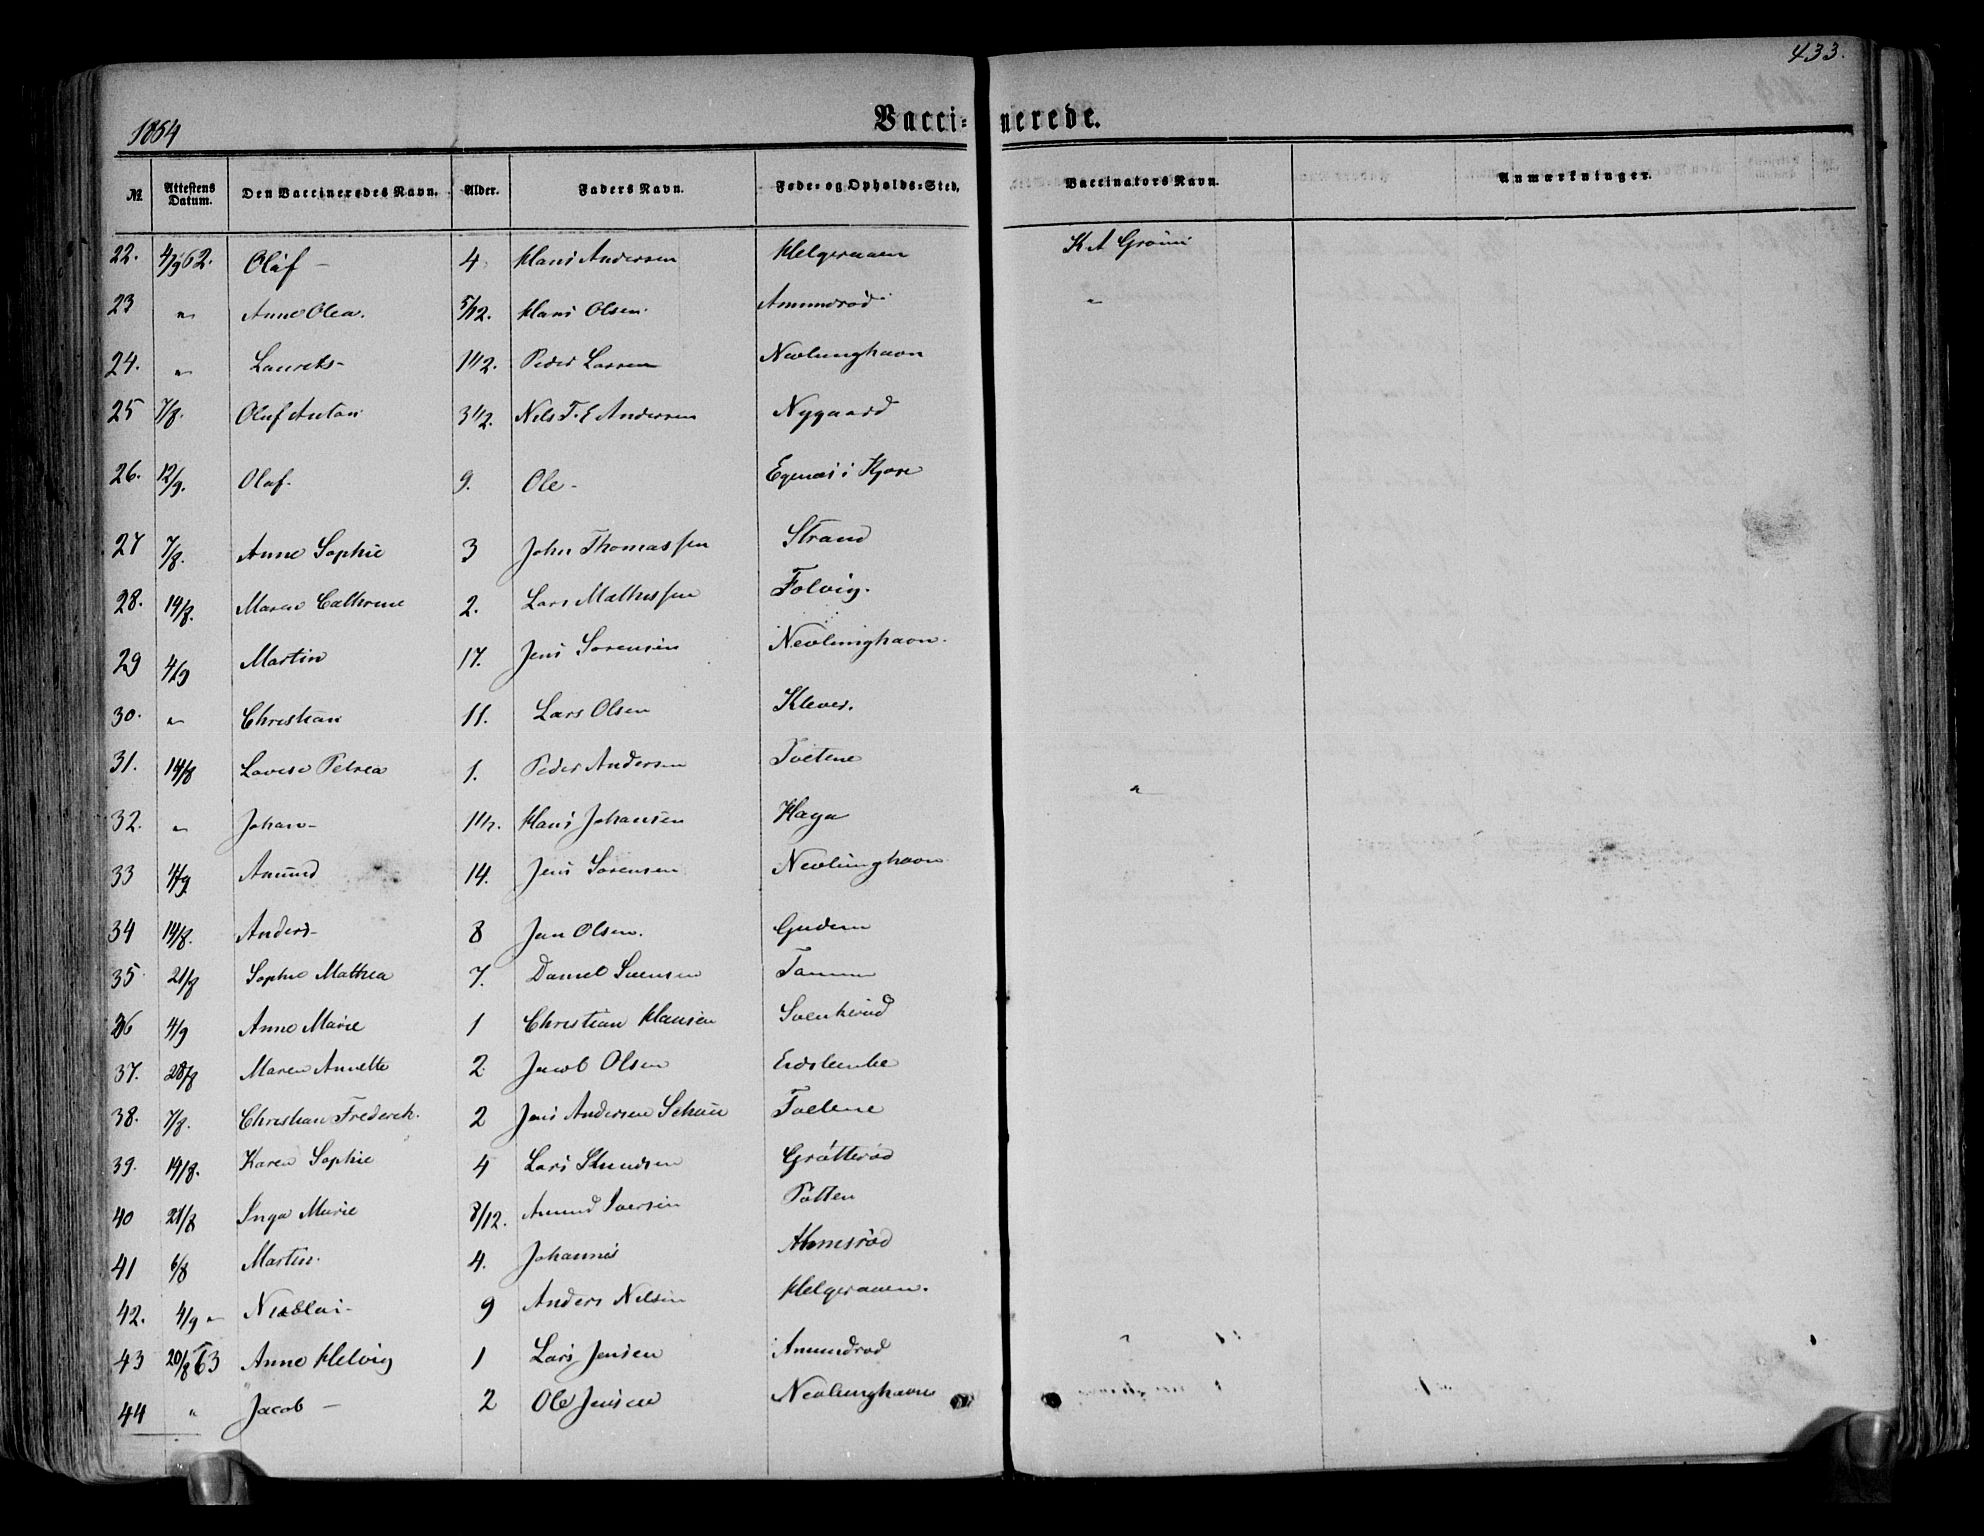 433.
1864
Vaccinerede.
№ Attestens Datum. Den Vaccineredes Navn. Alder. Faders Navn. Føde- og Opholds-Sted. Vaccinators Navn. Anmærkninger.
22. 4/9 62. Olaf – 4 Hans Andersen Helgeraaen K A
23 " Anne Olea. 5/12. Hans Olsen. Amundrød "
24. " Laurits – 1 1/2. Peder Larsen Nevlunghavn
25 7/8. Oluf Anton 3 1/2. Nils T. E Andersen Nygaard
26. 12/9. Olaf. 9. Ole – i Kjose
27 7/8. Anne Sophie 3 John Thomassen Strand
28. 14/8. Maren Cathrine 2. Lars Mathissen Folvig.
29 4/9 Martin 17. Jens Sørensen Nevlunghavn.
30. " Christian 11. Lars Olsen Klever.
31. 14/8 Lovise Petrea 1. Peder Andersen Tvetene
32. " Johan – 1 1/2. Hans Johansen Haga "
33 4/9 Amund 14. Jens Sørensen Nevlunghavn
34 14/8. Anders – 8 Jan Olsen. Gudem
35 21/8 Sophie Mathea 7. Daniel Svensen Tanum
36 4/9 Anne Marie 1 Christian Hansen Svenkerød
37. 28/8 Maren Annette 2 Jacob Olsen
38. 7/8. Christian Frederik. 2 Jens Andersen Tvetene
39. 14/8. Karen Sophie 4 Lars Knudsen Grøtterød
40 21/8 Inga Marie 8/12. Amund Iversen Pøtten
41 6/8 Martin. 4. Johannes
42. 4/9 " Nicolai – 9 Anders Nilsen Helgeraaen.
43 20/8 63 Anne Helvig 1 Lars Jensen Amundrød
44 " Jacob – 2 Ole Jensen Nevlunghavn